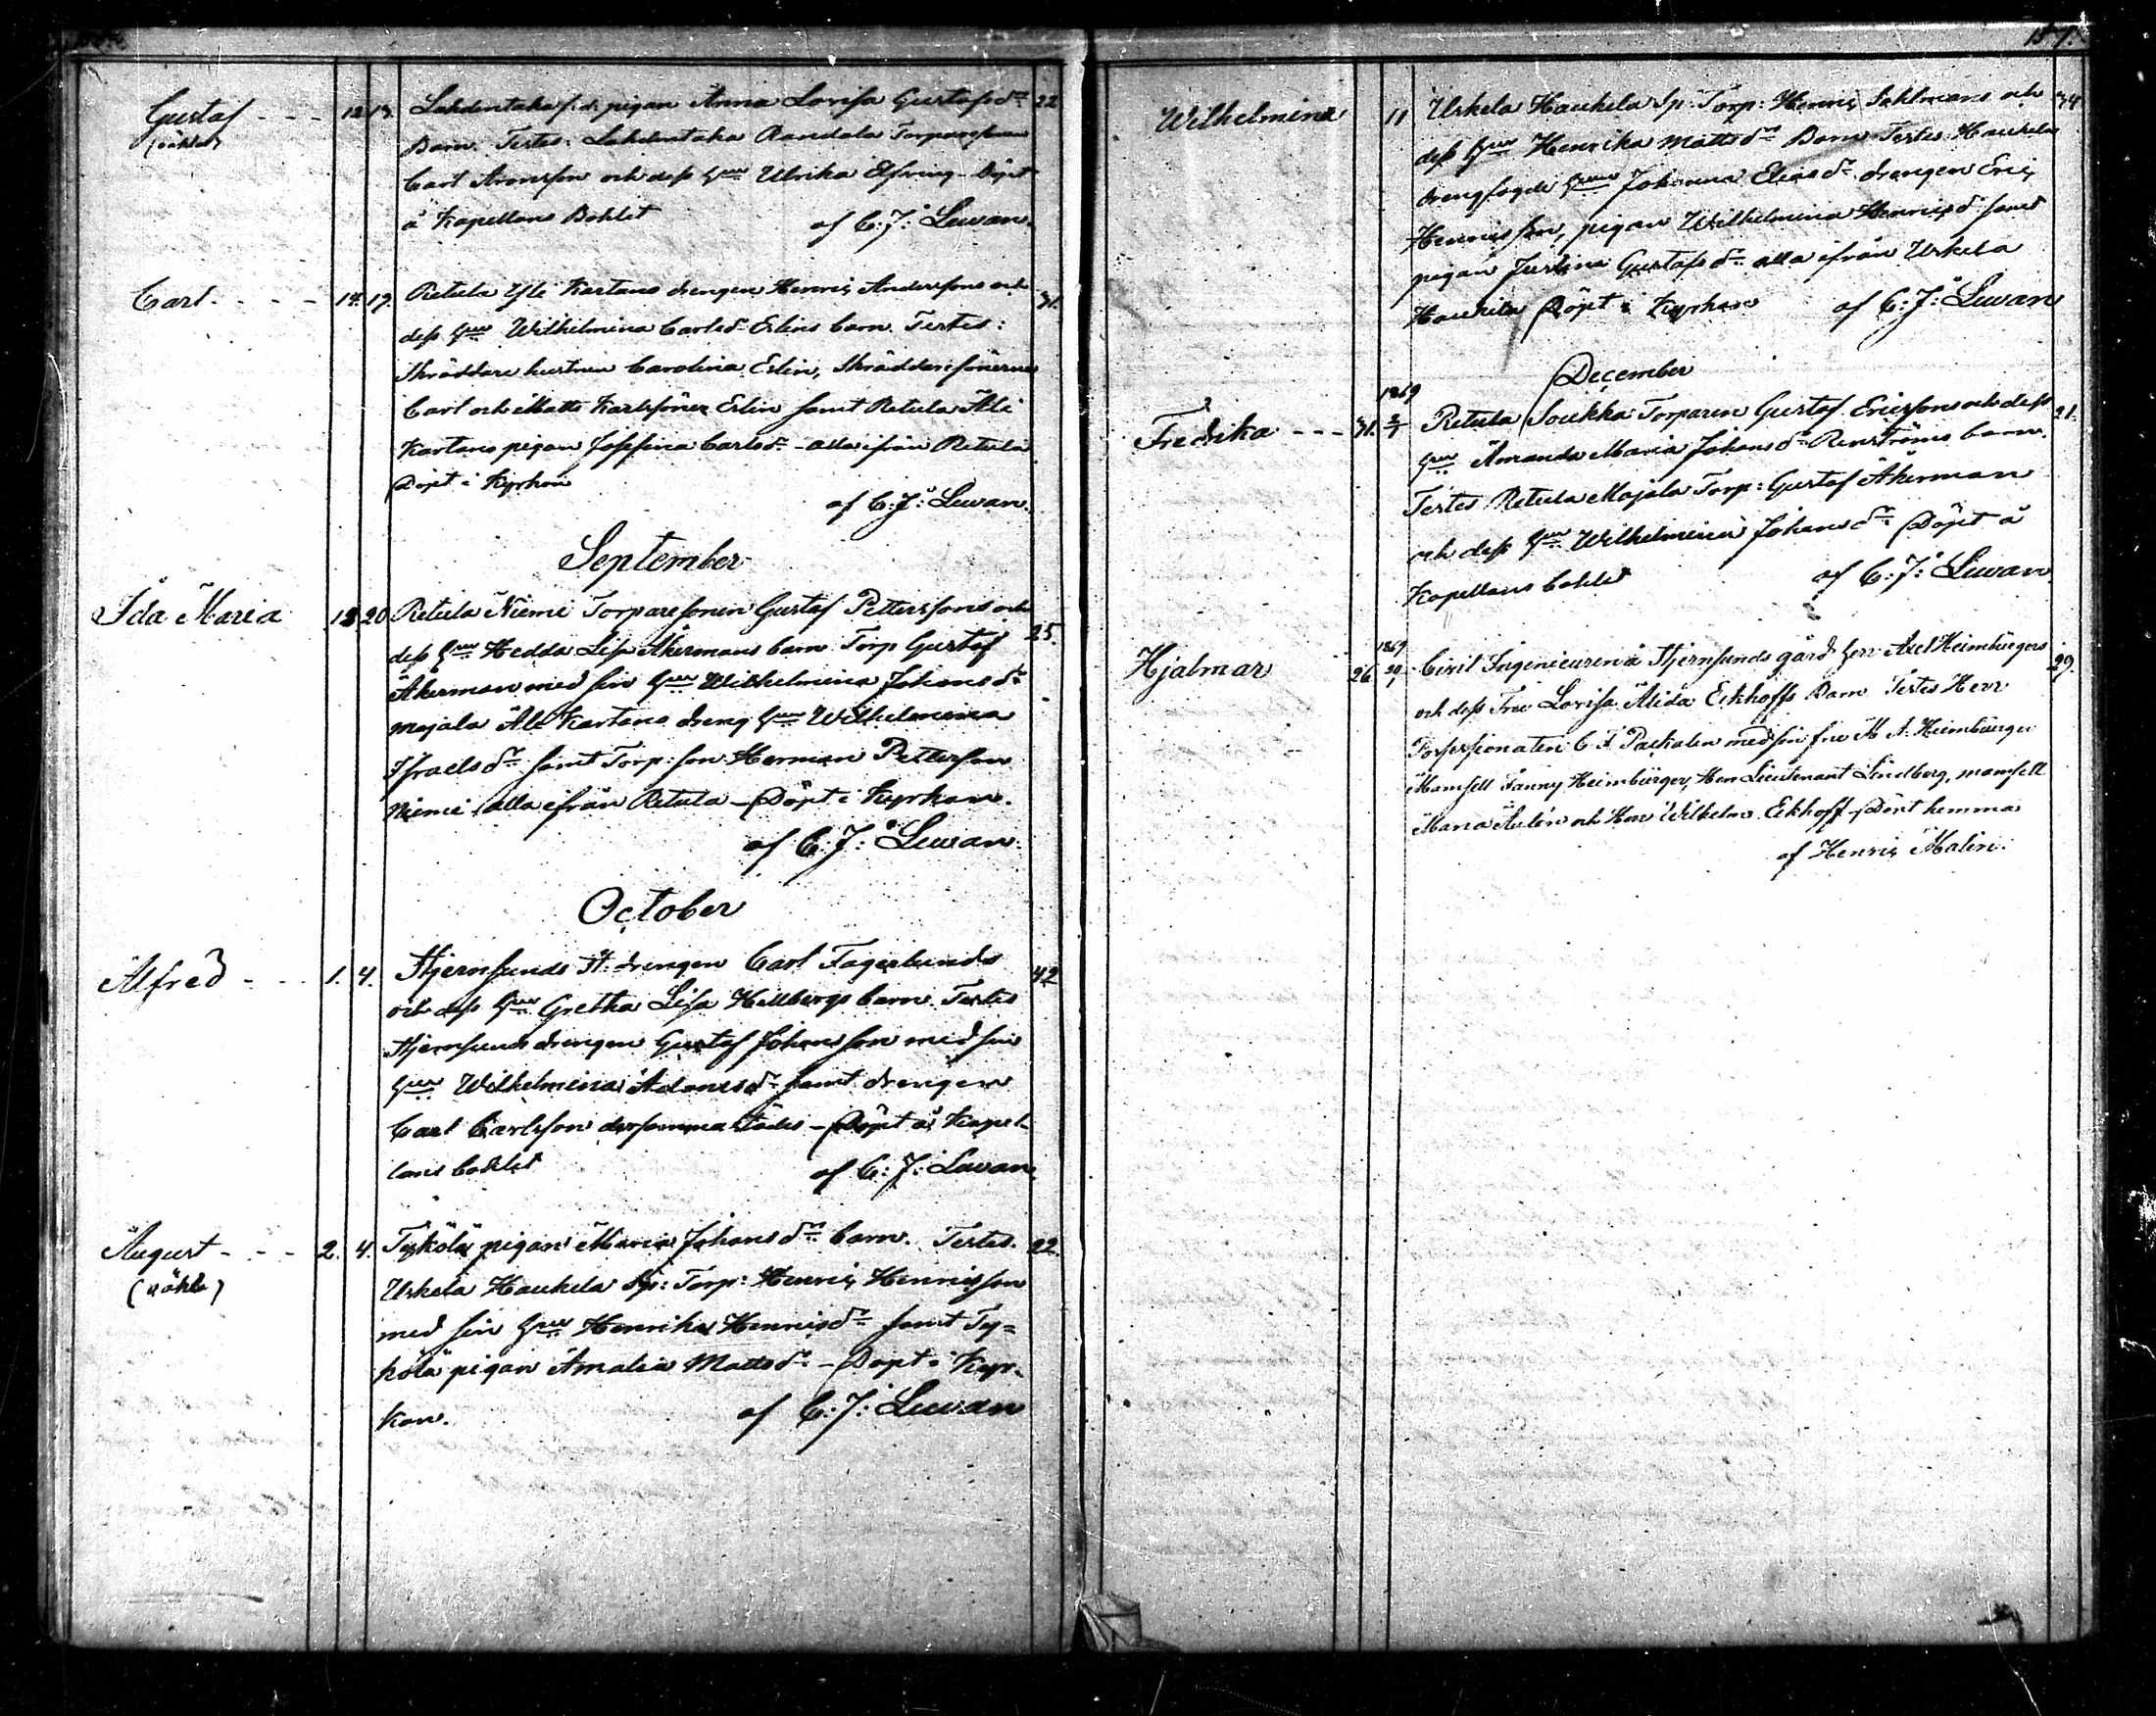 157.
Gustaf - - - 12. 13. Lahdentaka s. d. pigan Anna Lovisa Gustafsdr 22
(oäkta) Barn. Testes: Lahdentaka Torparesonen
Carl Aronsson och dess Hru Ulrika Elfving - Döpt
å Kapellans Bohlet af C: J: Lewan.
Carl - - - - 14. 19. Retula Yli Kartano drengen Henric Anderssons och 31.
dess Hru Wilhelmina Carlsdr Erlins barn. Testes:
Skräddare hustrun Carolina Erlin, Skräddaresönerne
Carl och Matts Karlsöner Erlin samt Retula Ali
Kartano pigan Josefina Carlsdr - alla ifrån Retula
Döpt i Kyrkan
af C: J: Lewan.
September
Ida Maria 18. 20 Retula Niemi Torparesonen Gustaf Petterssons och
dess Hru Hedda Lisa Åkermans barn Torp Gustaf 25.
Åkerman med sin Hru Wilhelmina Johansdr
Majala Ali Kartano dreng Hru Wilhelmina
Israelsdr samt Torp: son Herman Pettersson
Niemi alla ifrån Retula - Döpt i Kyrkan.
af C: J: Lewan.
October
Alfred - - - 1. 4. Stjernsunds St. drengen Carl Fagerlunds 42
och dess Hru Gretha Lisa Hellbergs barn. Testes
Stjernsunds drengen Gustaf Johansson med sin
Hru Wilhelmina Adamsdr samt drengen
Carl Carlsson dersammastädes - Döpt å Kapel-
lans bohlet af C: J: Lewan.
August - - - 2. 4. Tykölä pigan Maria Johansdr barn. Testes. 22.
(oäkta) Urkela Haukela Sp: Torp: Henric Henricsson
med sin Hru Henrika Henricsdr samt Ty=
kölä pigan Amalia Mattsdr - Döpt i Kyr-
kan. af C: J: Lewan
Wilhelmina 11 Urkela Haukela Sp: Torp: Henric Sahlmans och 34
dess Hru Henrika Mattsdr Barn Testes Haukela
drengfogde Hru Johanna Eliasdr drengen Eric
Henricsson, pigan Wilhelmina Henricsdr samt
pigan Justina Gustafsdr alla ifrån Urkela
Haukela Döpt i Kyrkan af C: J: Lewan
December
1869
Fredrika - - - 31. 2/1 Retula Soukka Torparen Gustaf Ericssons och dess 21.
Hru Amanda Maria Johansdr Renströms barn.
Testes Retula Majala Torp: Gustaf Åkerman
och dess Hru Wilhelmina Johansdr Döpt å
Kapellans bohlet af C: J: Lewan
1869
Hjalmar 26. 30/1 Civil Ingenieuren å Stjernsunds gård Herr Axel Heimbürgers 29.
och dess Fru Lovisa Alida Eckhoffs Barn Testes Herr
Possessionaten C. F. med sin fru M. A. Heimbürger
Mamsell Fanny Heimbürger, Herr Lieutenant Lindberg, mamsell
Maria och Herr Wilhelm Eckhoff - Döpt hemma
af Henric Malin.